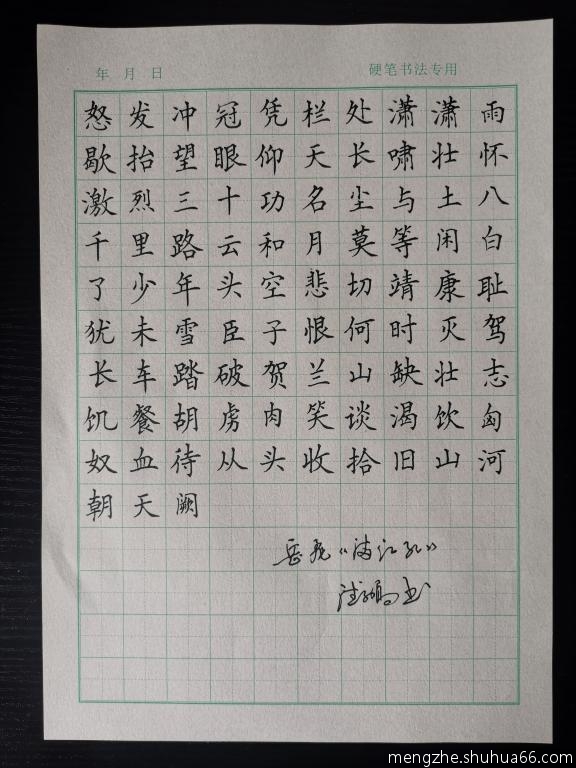 年 月 日 硬笔书法专用
怒发冲冠凭栏处潇潇雨
歇抬望眼仰天长啸壮怀
激烈三十功名尘与土八
千里路云和月莫等闲白
了少年头空悲切靖康耻
犹未雪臣子恨何时灭驾
长车踏破贺兰山缺壮志
饥餐胡虏肉笑谈渴饮匈
奴血待从头收拾旧山河
朝天阙
岳飞《满江红》
书
mengzhe.shuhua66.com